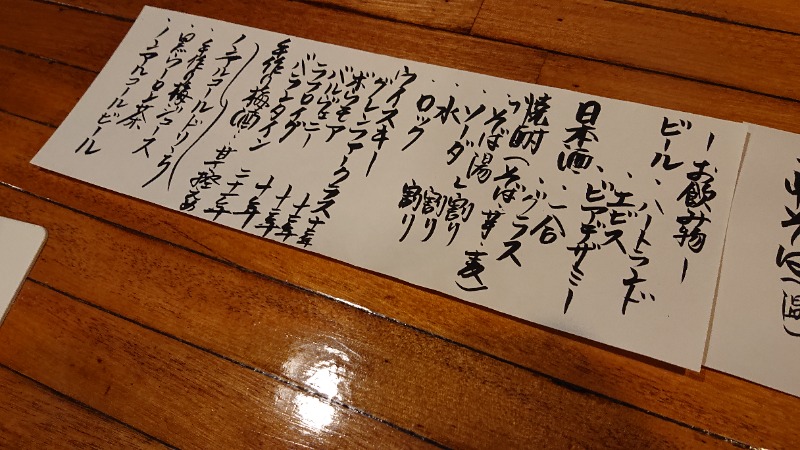 ーお飲み物ー
ビール・ハートランド
・エビス
・ビアデザミー
日本酒・一合
・グラス
焼酎(そば・芋・麦)
・そば湯割り
・ソーダ割り
・水割り
・ロック
ウイスキー
グレンファークラス十年
ボウモア十二年
バルヴェニー十二年
ラフロイグ十年
バランタイン二十一年
手作り梅酒・甘控えめ
ノンアルコールドリンク
・手作り梅ジュース
・黒ウーロン茶
・ノンアルコールビール